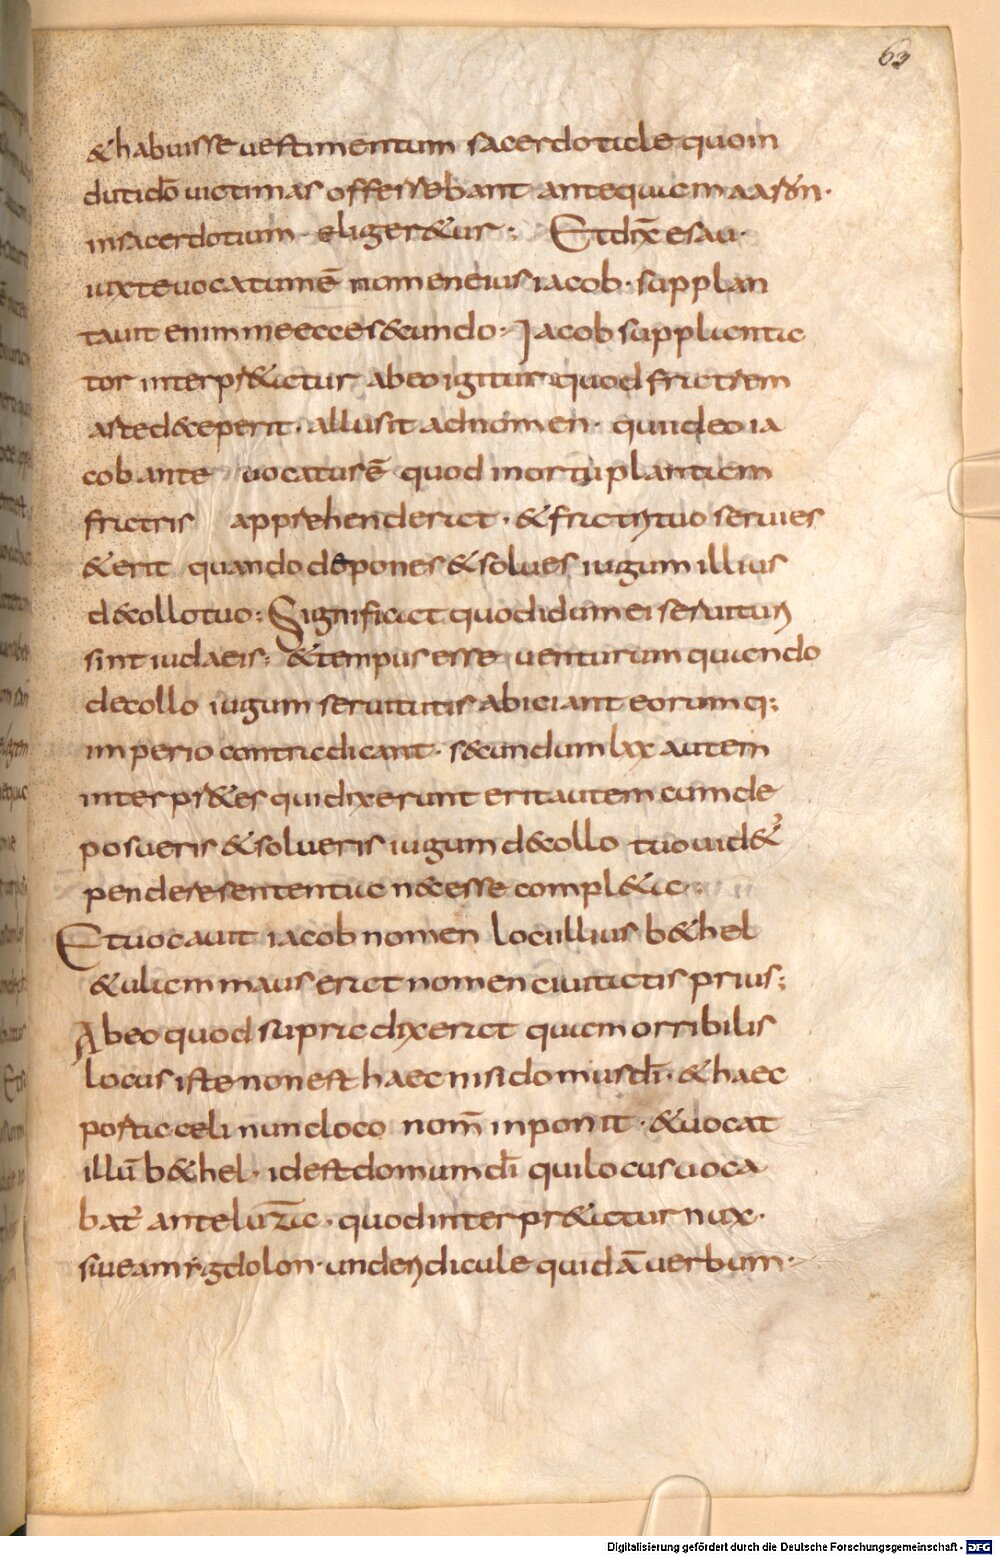 63
&habuisse uestimentum sacerdotale quoin
duti dō uictimas offerrebant antequam aarōn·
insacerdotium eliger&ur; Etdix̄ esau·
iuxte uocatum ē nomen eius iacob· supplan
tauit enim me ecce s&cundo· Iacob supplanta
tor interpr&atur abeo igitur quod fratrem
arte d&ceperit· allusit adnomen· qui ideo ia
cob ante uocatur ē quod inortu plantam
fratris apprehenderat· &fratri tuo seruies
&erit quando depones &solues iugum illius
d&collo tuo; Significat quod idumei seruituri
sint iudaeis; &tempus esse uenturum quando
decollo iugum seruitutis abiciant eorumq;
imperio contradicant· s&cundum lxx autem
interpr&es qui dixerunt erit autem cum de
posueris &solueris iugum d&collo tuo uid&ur
pendere sententia n&cesse compl&a;
Et uocauit iacob nomen loci illius b&hel
&ulammaus erat nomen ciuitatis prius;
Abeo quod supra dixerat quam orribilis
locus iste non est haec nisi domus dī· &haec
porta celi nunc loco nom̄ inponit· &uocat
illū b&hel· id est domum dī qui locus uoca
bat' ante luza· quod interpr&atur nux·
siue amygdolon· unde ridicule quidā uerbum·
Digitalisierung gefördert durch die Deutsche Forschungsgemeinschaft - DFG